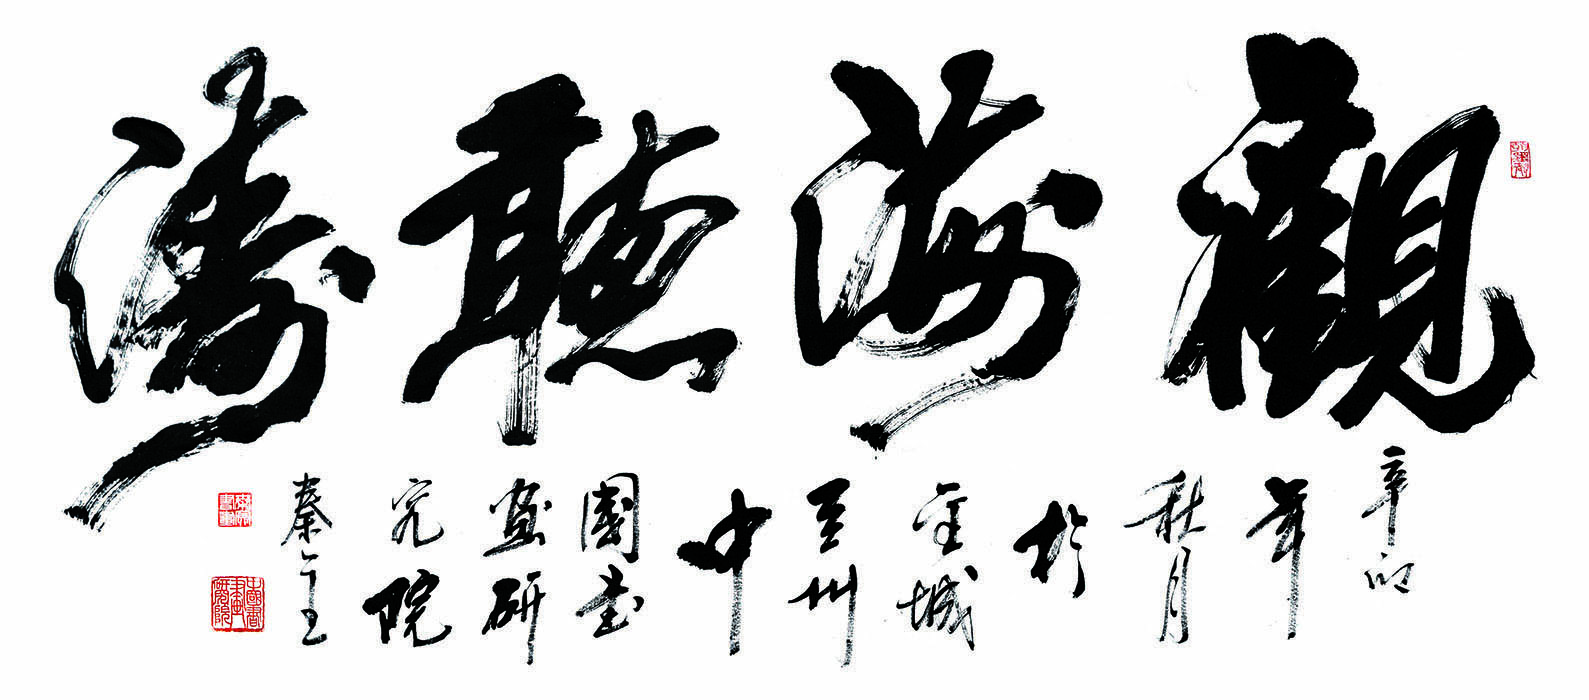 觀海聽濤
辛卯
年
秋月
於
金城
蘭州
中
國書
畫研
究院
秦